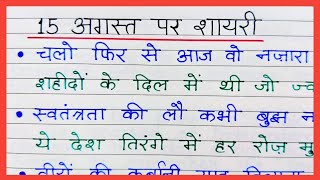 15 अगस्त पर शायरी
• चलो फिर से आज वो नज़ारा
शहीदों के दिल में थी जो ज्व
• स्वतंत्रता की लौ कभी बुझ न
ये देश तिरंगे में हर रोज़ मु
• वीरों की कुर्बानी याद